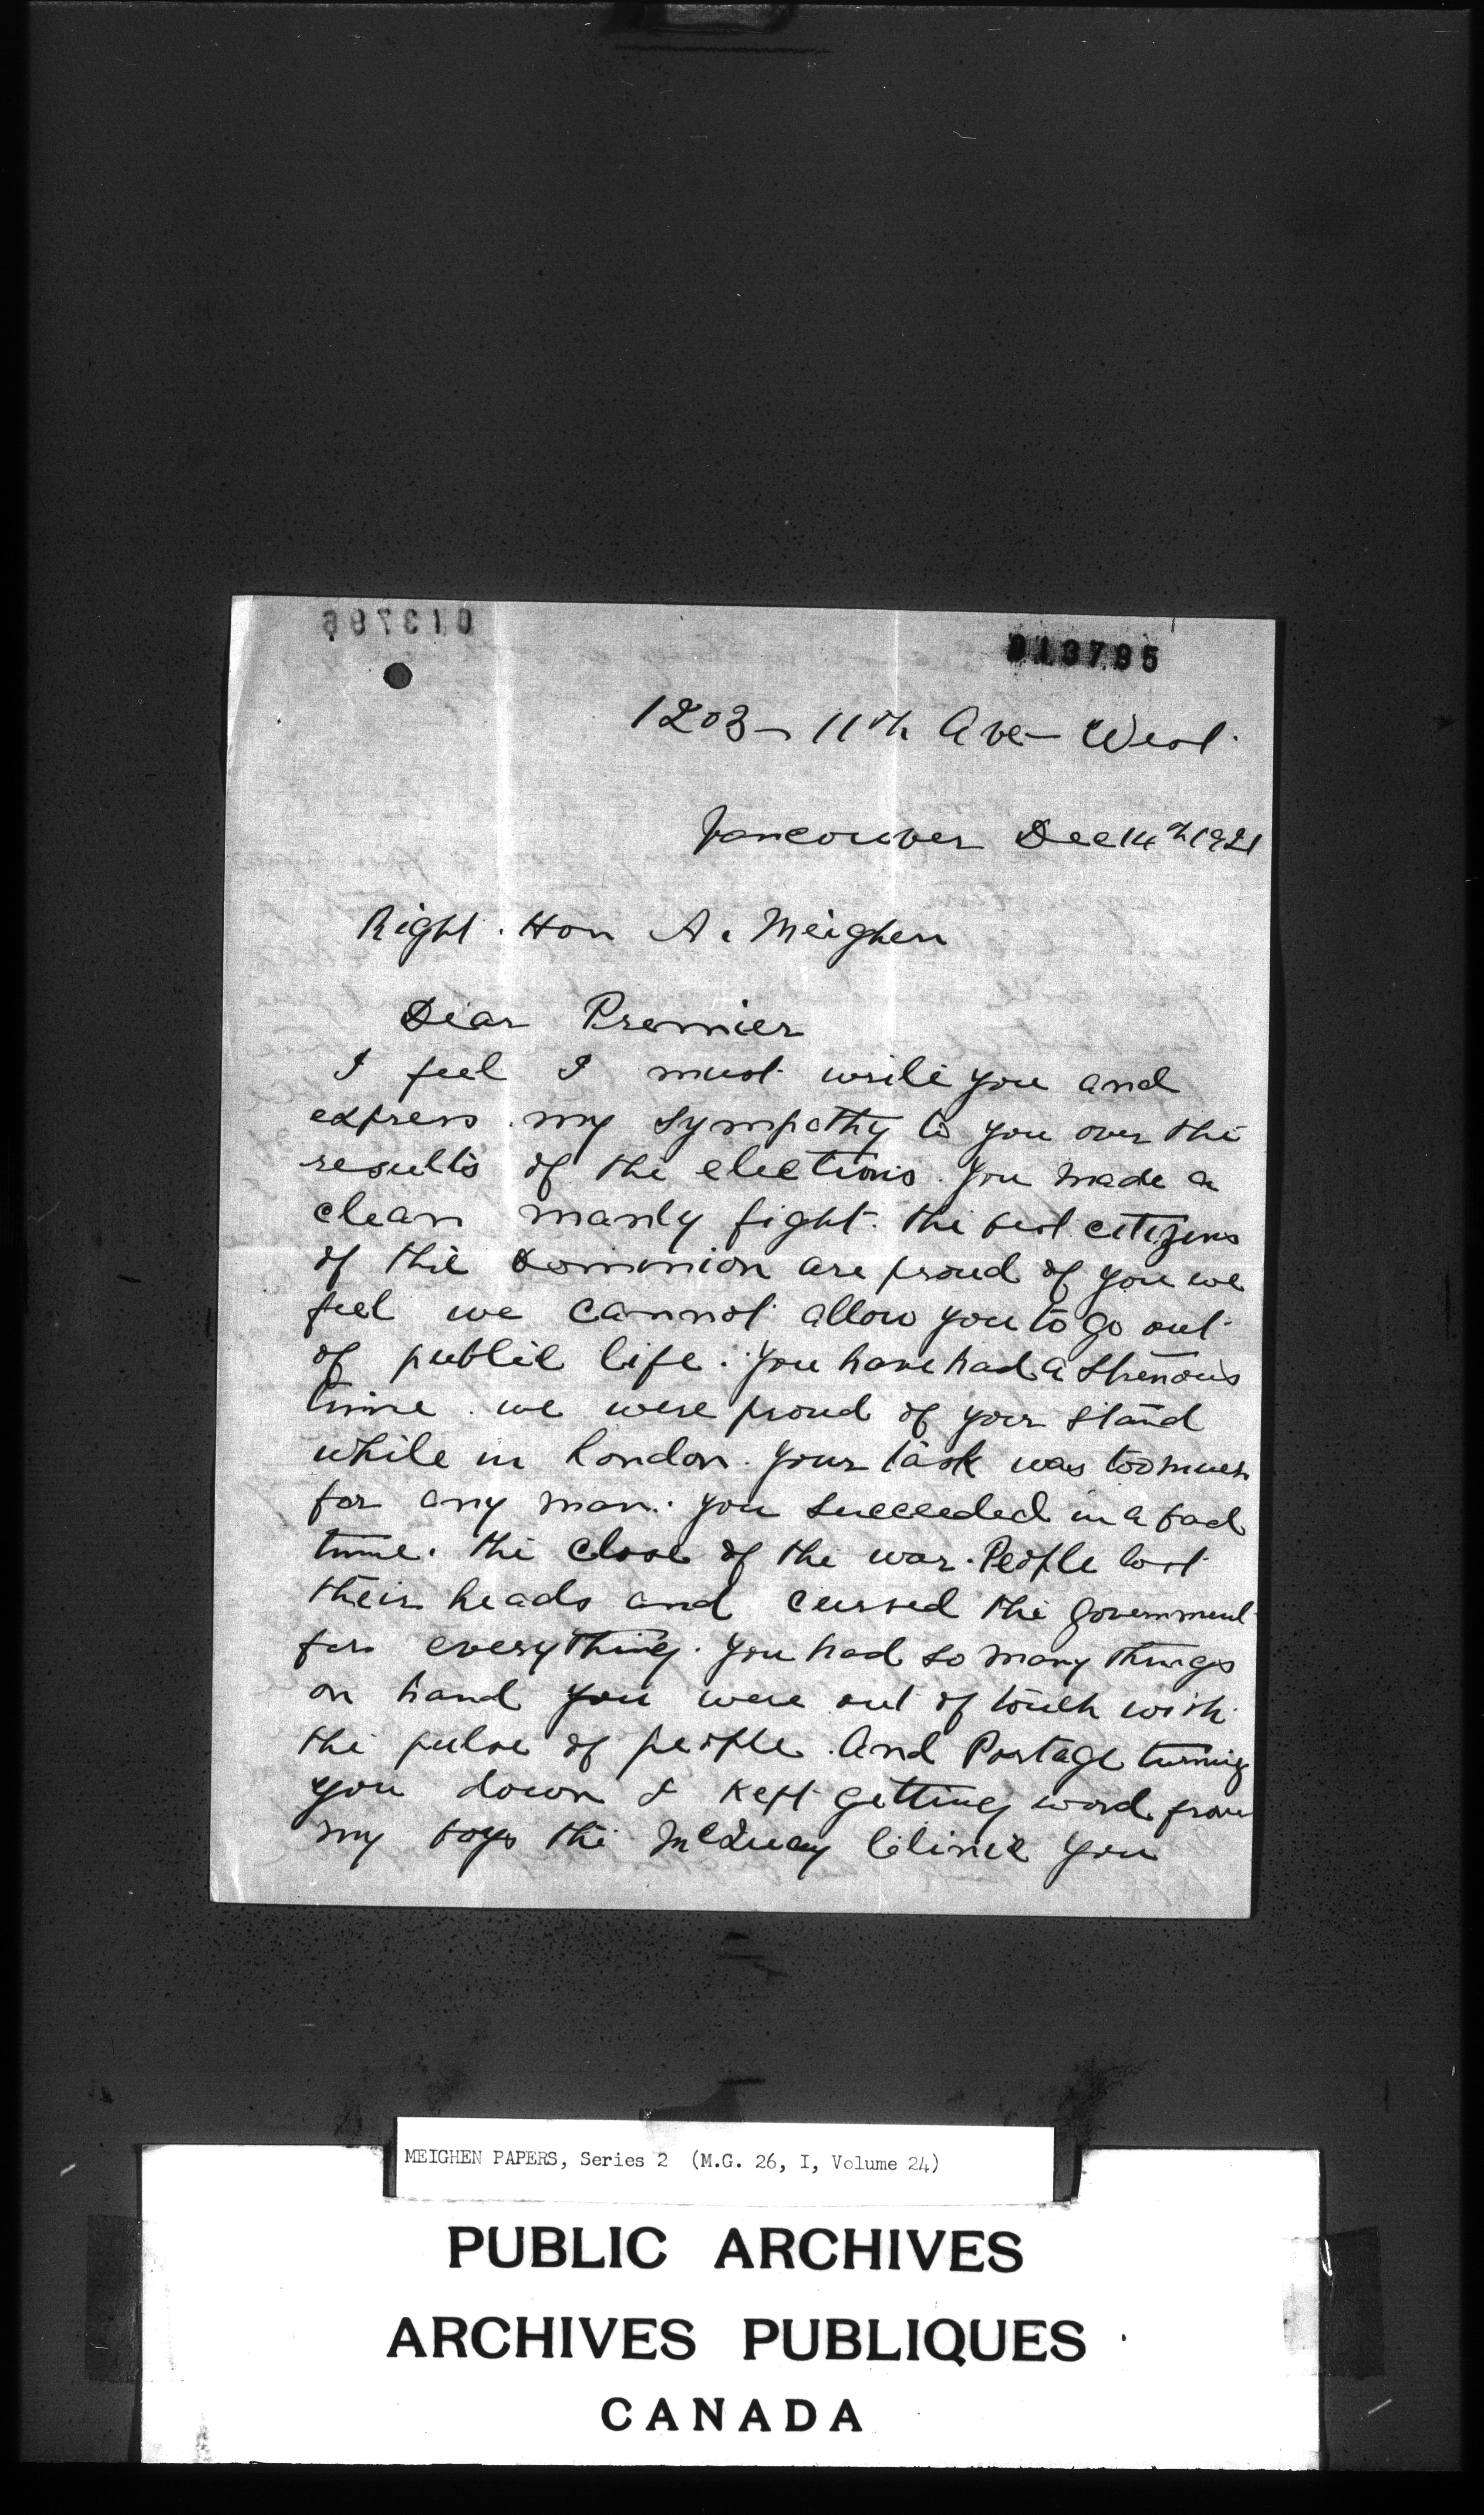 013796
013795
1203 - 11th Ave - West.
Vancouver Dec 14th 1921
Right. Hon A. Meighen
Dear Premier
I feel I must write you and
express my sympathy to you over the
results of the elections. You made a
clean manly fight. the best citizens
of this Dominion are proud of you we
feel we cannot allow you to go out
of public life. You have had a strenous
time. we were proud of your stand
while in London. your task was too much
for any man. you succeeded in a bad
time. the close of the war. People lost
their heads and cursed the government
for everything. you had so many things
on hand you were out of touch with
the pulse of people. And Portage turning
you down I kept getting word from
my boys the McQuay Clinic you
MEIGHEN PAPERS, Series 2 (M.G. 26, I, Volume 24)
PUBLIC ARCHIVES
ARCHIVES PUBLIQUES
CANADA